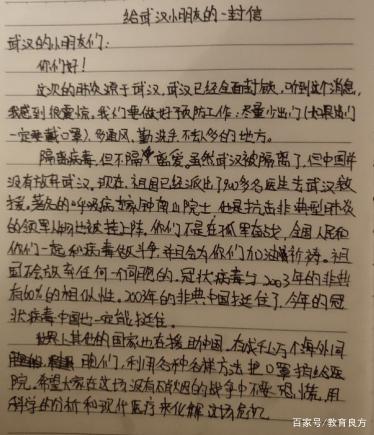 给武汉小朋友的一封信
武汉的小朋友们：
你们好！
这次的肺炎源于武汉，武汉已经全面封锁，听到这个消息，
我感到很震惊。我们要做好预防工作：尽量少出门(如果出门
一定要戴口罩)、多通风、勤洗手、不去人多的地方。
隔离病毒，但不隔离爱。虽然武汉被隔离了，但中国并
没有放弃武汉。现在，祖国已经派出了700多名医生去武汉救
援，著名的呼吸病专家钟南山院士，他是抗击非典型肺炎
的领军人物也被装上阵。你们不是在孤军奋战，全国人民和
你们一起和病毒做斗争，并且会为你们加油、祈祷。祖
国不会放弃任何一个同胞的。冠状病毒与2003年的非典
有60%的相似性。2003年的非典中国挺住了，今年的冠
状病毒中国也一定能挺住。
世界上其他的国家也在援助中国，在成千上万个海外同
胞们，利用各种各样方法把口罩捐给医
院。希望大家在这场没有硝烟的战争中不要恐慌，用
科学的分析和现代医疗来化解这场危机。
百家号/教育良方